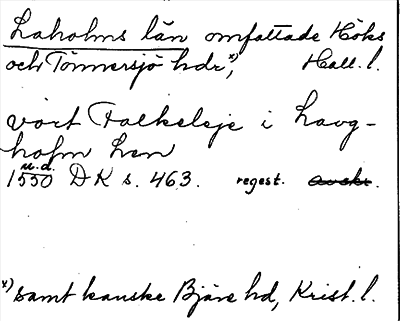 Laholms län omfattade Höks
och Tönnersjö hdr*), Hall. l.
vort Falkeleje i Laug-
holm len
u.d.
1550 DK s. 463. regest. avskr.
*) samt kanske Bjäre hd, Krist. l.